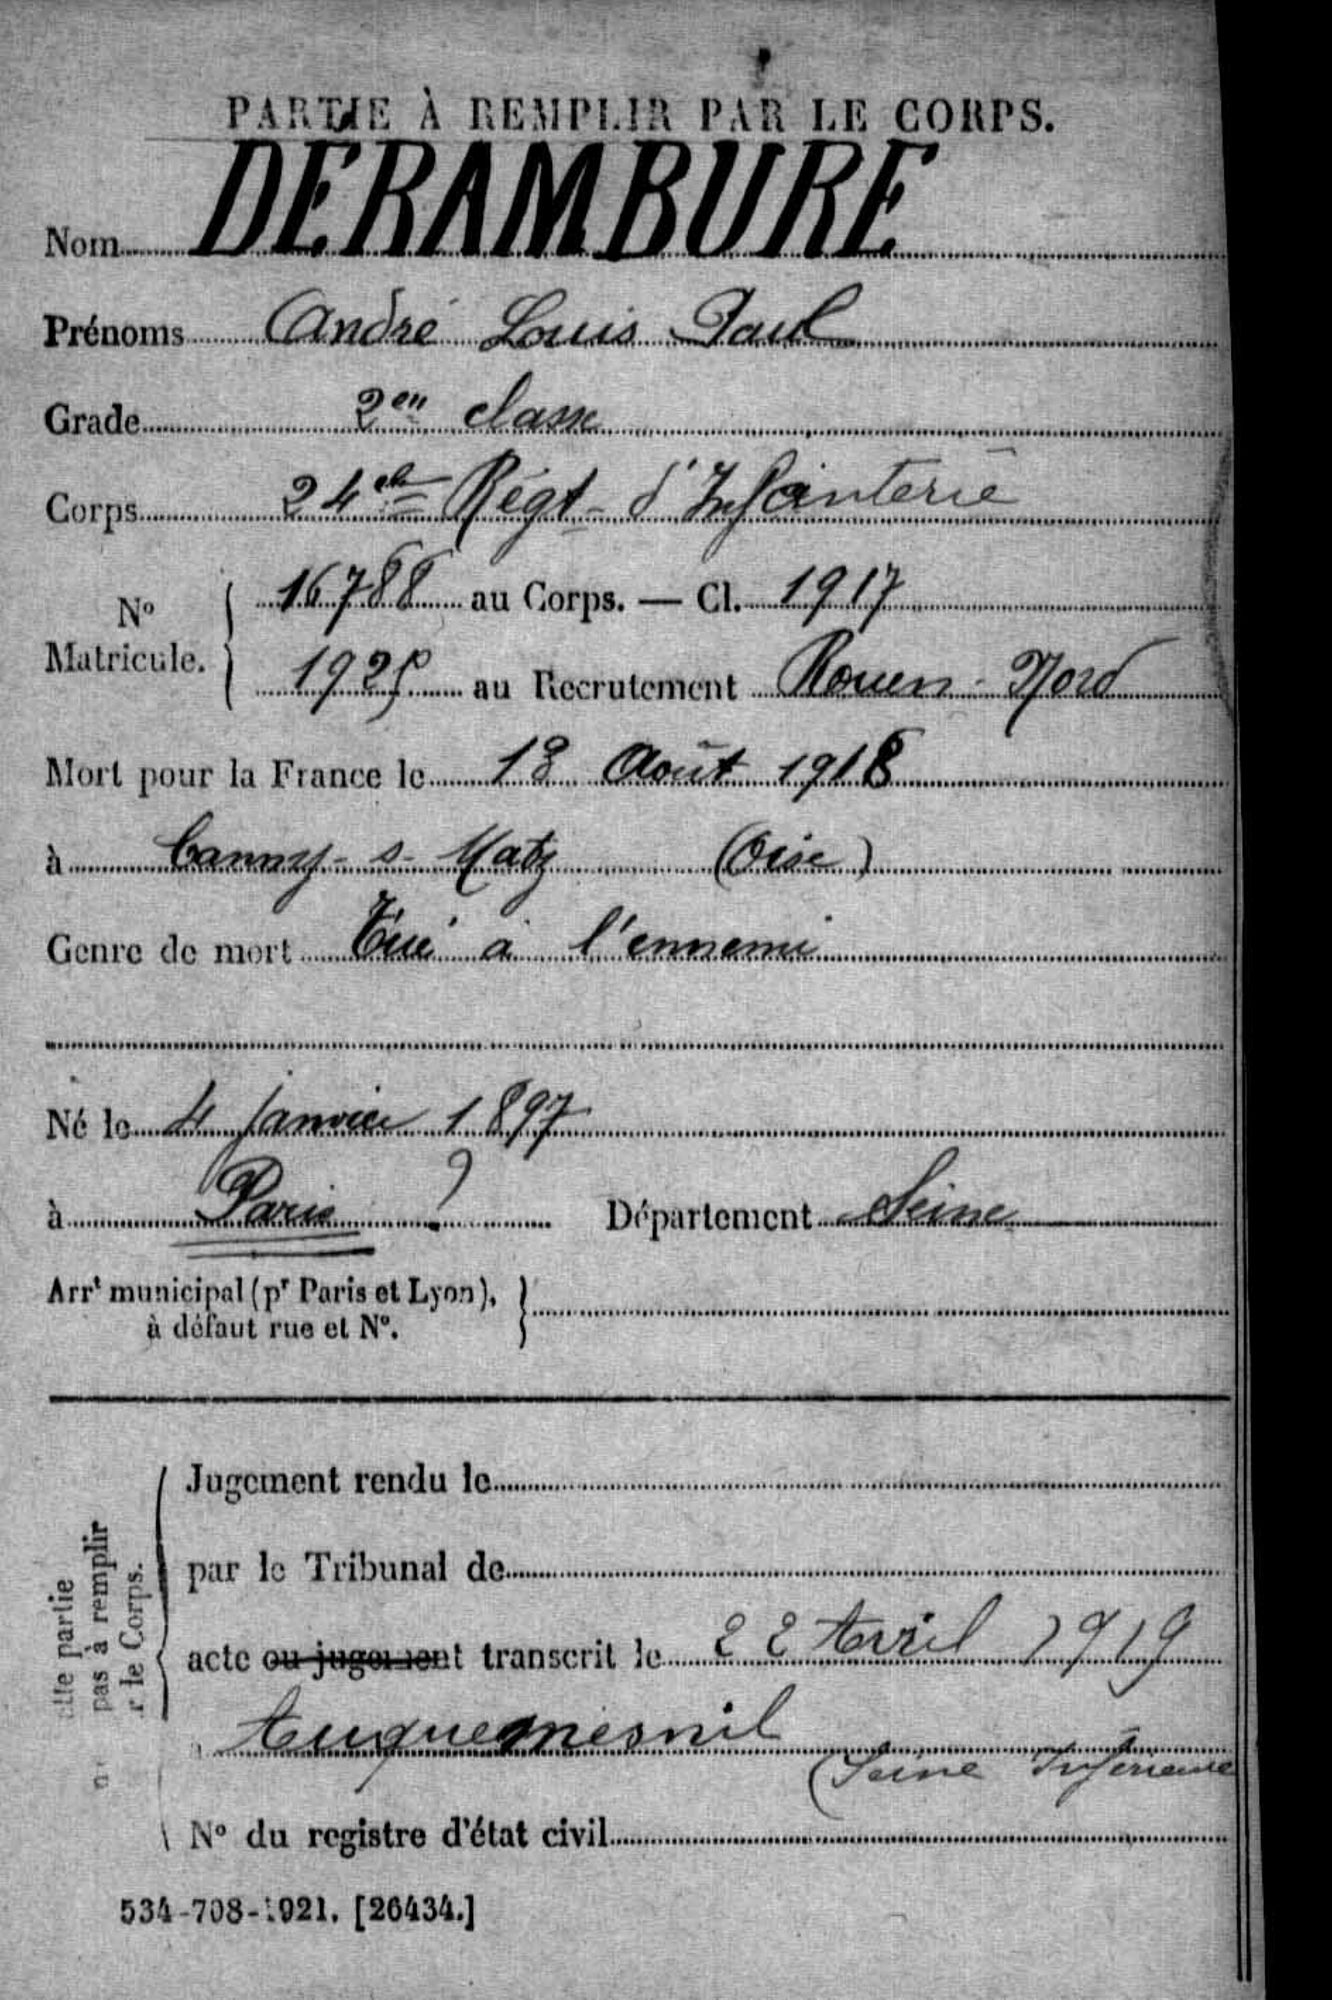 PARTIE À REMPLIR PAR LE CORPS.
Nom DERAMBURE
Prénoms André Louis Paul
Grade 2en classe
Corps 24e Régt d'Infanterie
No Matricule. 16788 au Corps. — Cl. 1917
1925 au Recrutement Rouen-Nord
Mort pour la France le 18 Août 1918
à Canny-s-Matz (Oise)
Genre de mort Tué à l'ennemi
Né le 4 janvier 1897
à Paris ? Département Seine
Arrt municipal (pr Paris et Lyon),
à défaut rue et No.
Jugement rendu le
par le Tribunal de
acte ou jugement transcrit le 22 Avril 1919
Auquemesnil
(Seine Inférieure
No du registre d'état civil
partie
pas à remplir
le Corps.
534-708-1921. [26434.]